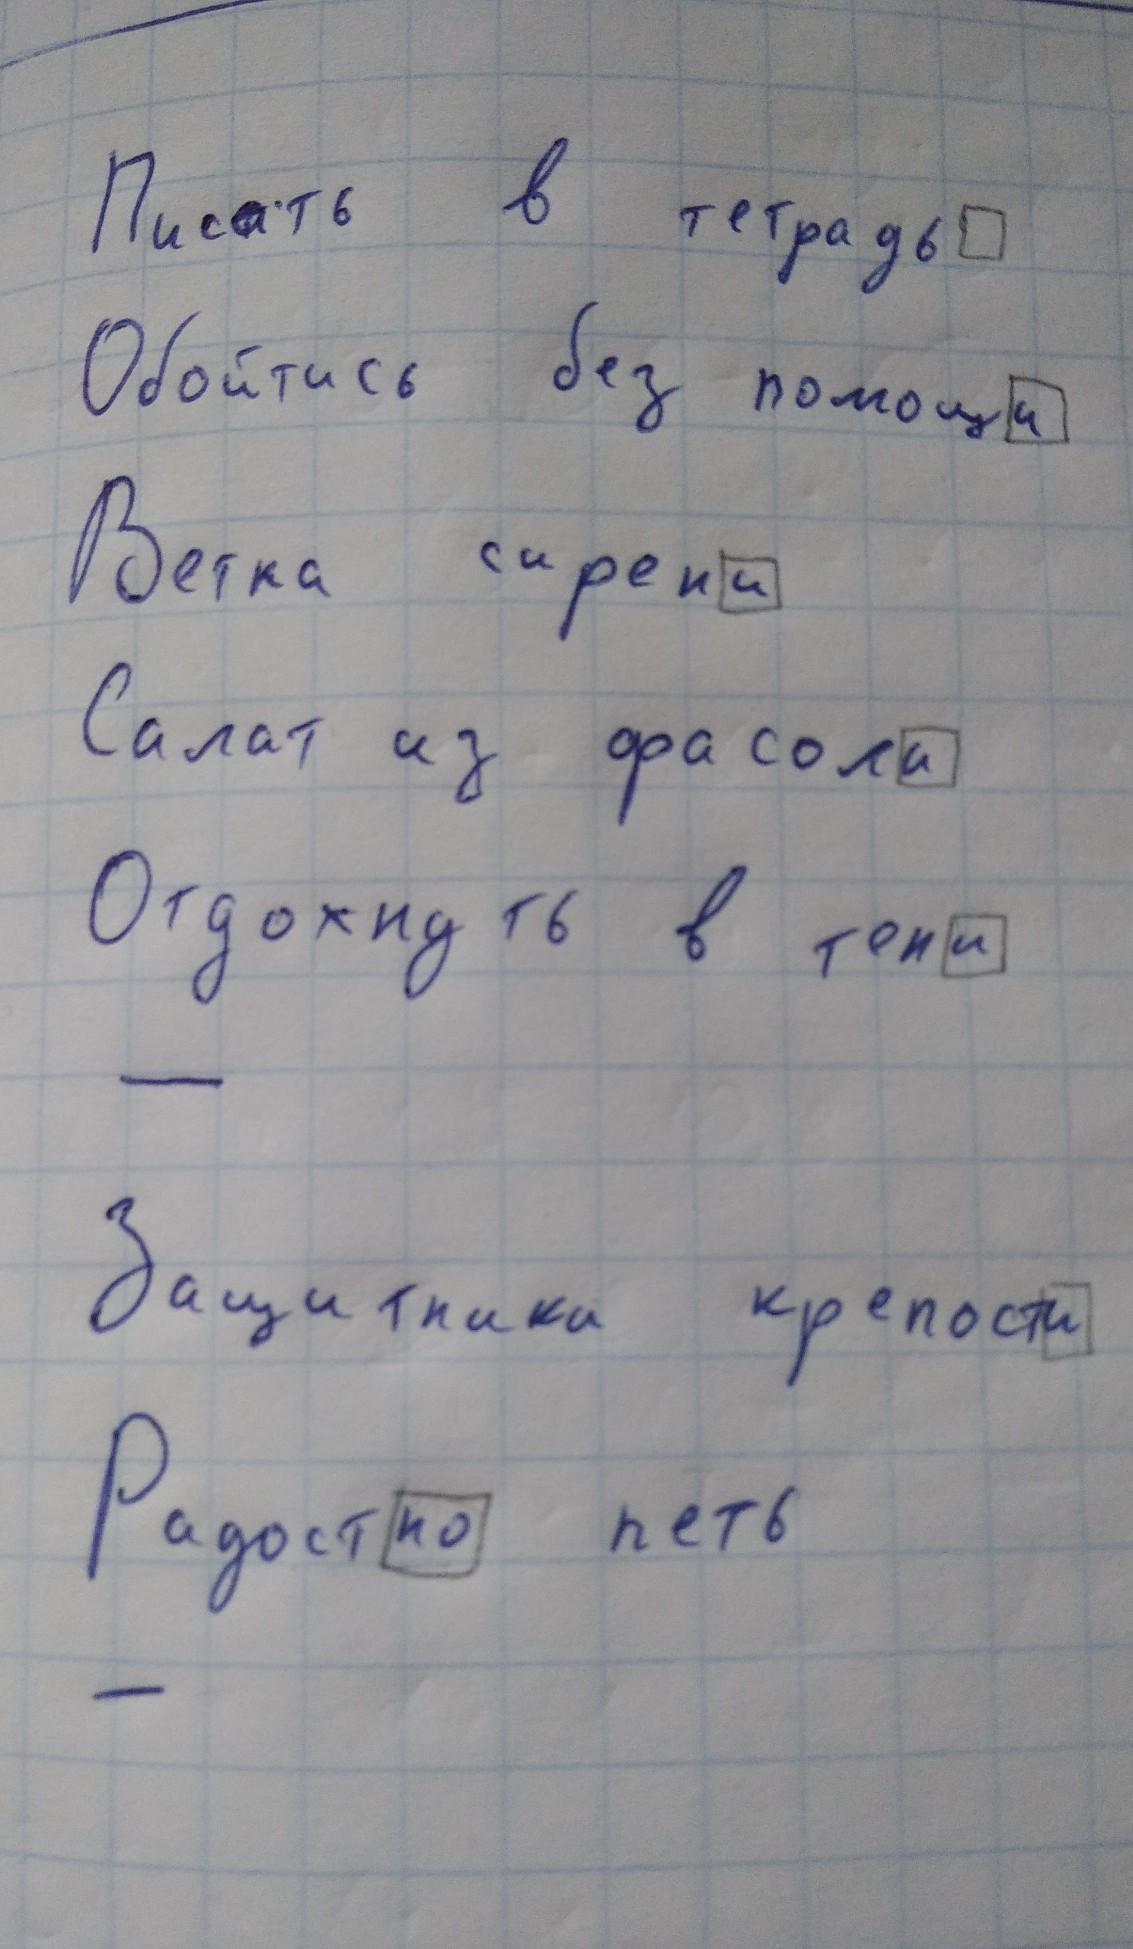 Писать в тетрадь
Обойтись без помощи
Ветка сирени
Салат из фасоли
Отдохнуть в тени
—
Защитники крепости
Радостно петь
—